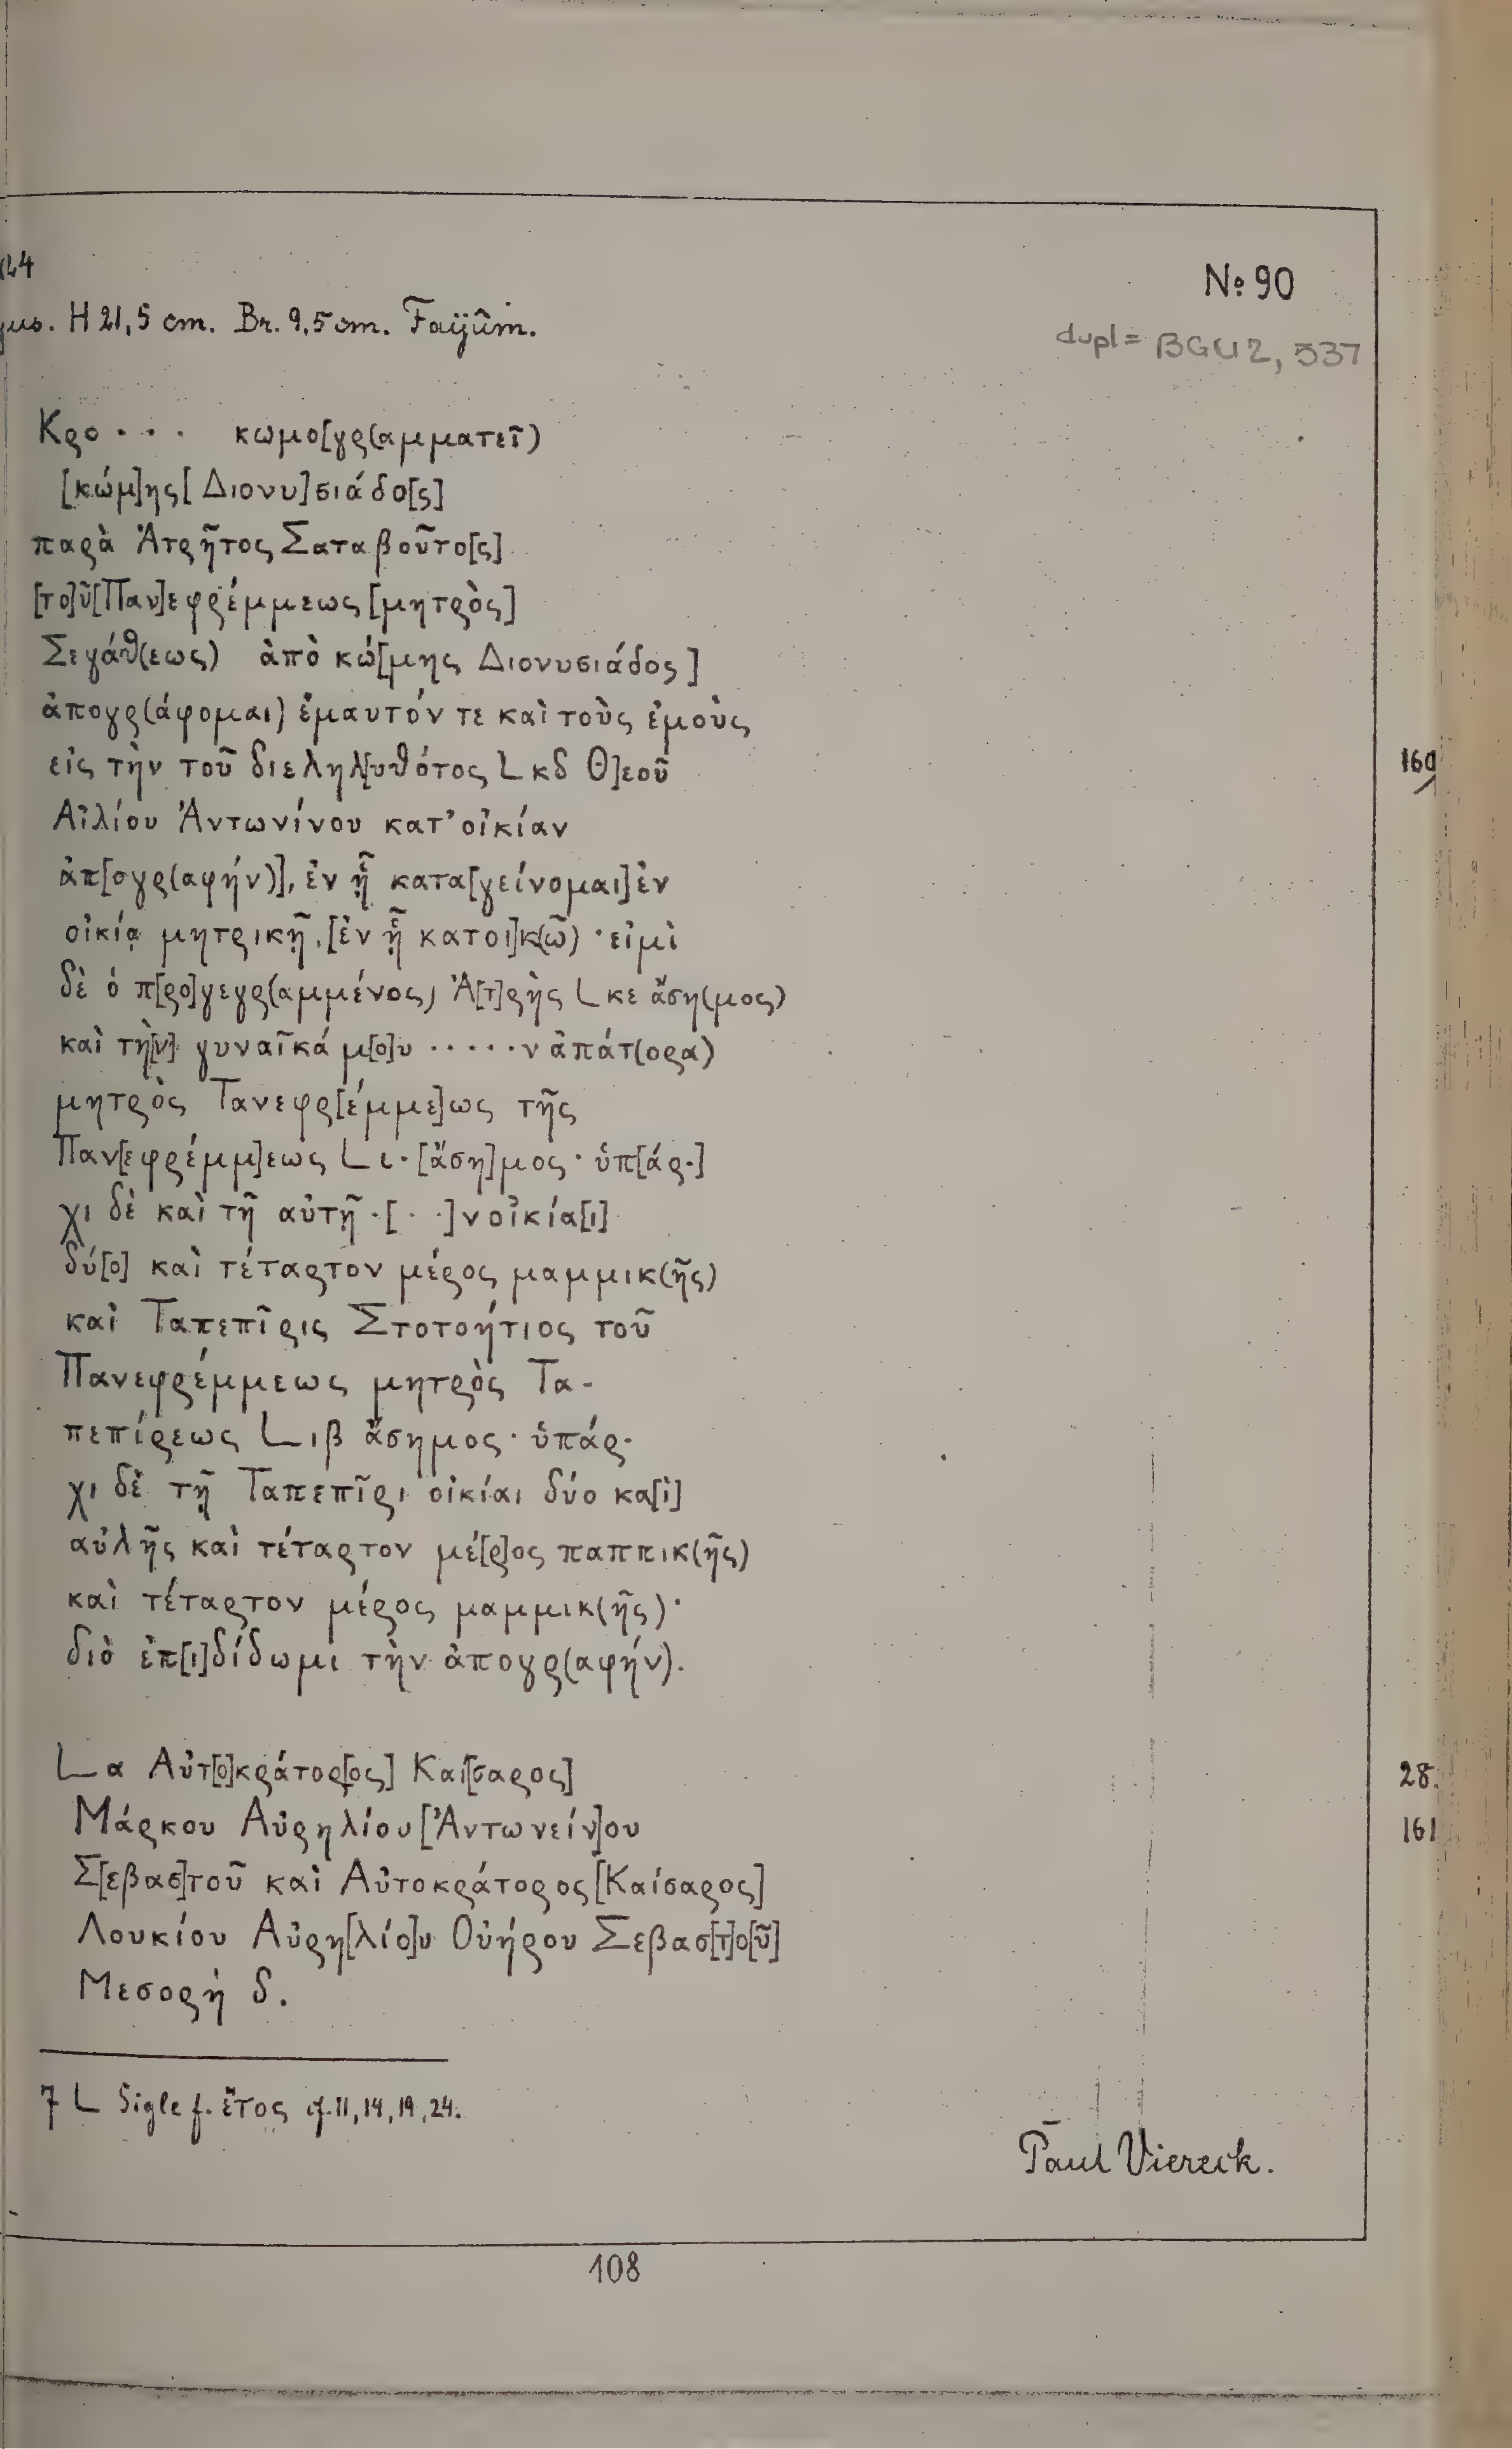 24
N⸰ 90
H 21,5 cm. Br. 9,5 cm. Faijûm.
dupl = BGU 2, 537
Κρο · · · κωμο[γρ(αμματεῖ)
[κώμ]ης[ Διονυ]σιάδο[ς]
παρὰ Ἁτρῆτος Σαταβοῦτο[ς]
[το]ῦ[Παν]εφρέμμεως [μητρὸς]
Σεγάθ(εως) ἀπὸ κώ[μης Διονυσιάδος]
ἀπογρ(άφομαι) ἐμαυτόν τε καὶ τοὺς ἐμοὺς
εἰς τὴν τοῦ διεληλ[υθότος L κδ Θ]εοῦ
160
Αἰλίου Ἀντωνίνου κατ' οἰκίαν
ἀπ[ογρ(αφήν)], ἐν ᾗ κατα[γείνομαι] ἐν
οἰκίᾳ μητρικῇ, [ἐν ᾗ κατοι]κ(ῶ) · εἰμὶ
δὲ ὁ π[ρο]γεγρ(αμμένος) Ἁ[τ]ρῆς L κε ἄση(μος)
καὶ τὴ[ν] γυναῖκά μ[ο]υ · · · · · ν ἀπάτ(ορα)
μητρὸς Τανεφρ[έμμε]ως τῆς
Παν[εφρέμμ]εως L ι · [ἄση]μος · ὑπ[άρ-]
χι δὲ καὶ τῇ αὐτῇ · [ · · ]ν οἰκία[ι]
δύ[ο] καὶ τέταρτον μέρος μαμμικ(ῆς)
καὶ Ταπεπῖρις Στοτοήτιος τοῦ
Πανεφρέμμεως μητρὸς Τα-
πεπίρεως L ιβ ἄσημος · ὑπάρ-
χι δὲ τῇ Ταπεπῖρι οἰκίαι δύο κα[ὶ]
αὐλῆς καὶ τέταρτον μέ[ρ]ος παππικ(ῆς)
καὶ τέταρτον μέρος μαμμικ(ῆς) ·
διὸ ἐπ[ι]δίδωμι τὴν ἀπογρ(αφήν).
L α Αὐτ[ο]κράτορ[ος] Καί[σαρος]
28.
Μάρκου Αὐρηλίου [Ἀντωνείν]ου
161
Σ[εβασ]τοῦ καὶ Αὐτοκράτορος [Καίσαρος]
Λουκίου Αὐρη[λίο]υ Οὐήρου Σεβασ[τ]ο[ῦ]
Μεσορὴ δ.
7 L Sigle f. ἔτος cf. 11, 14, 19, 24.
Paul Viereck.
108